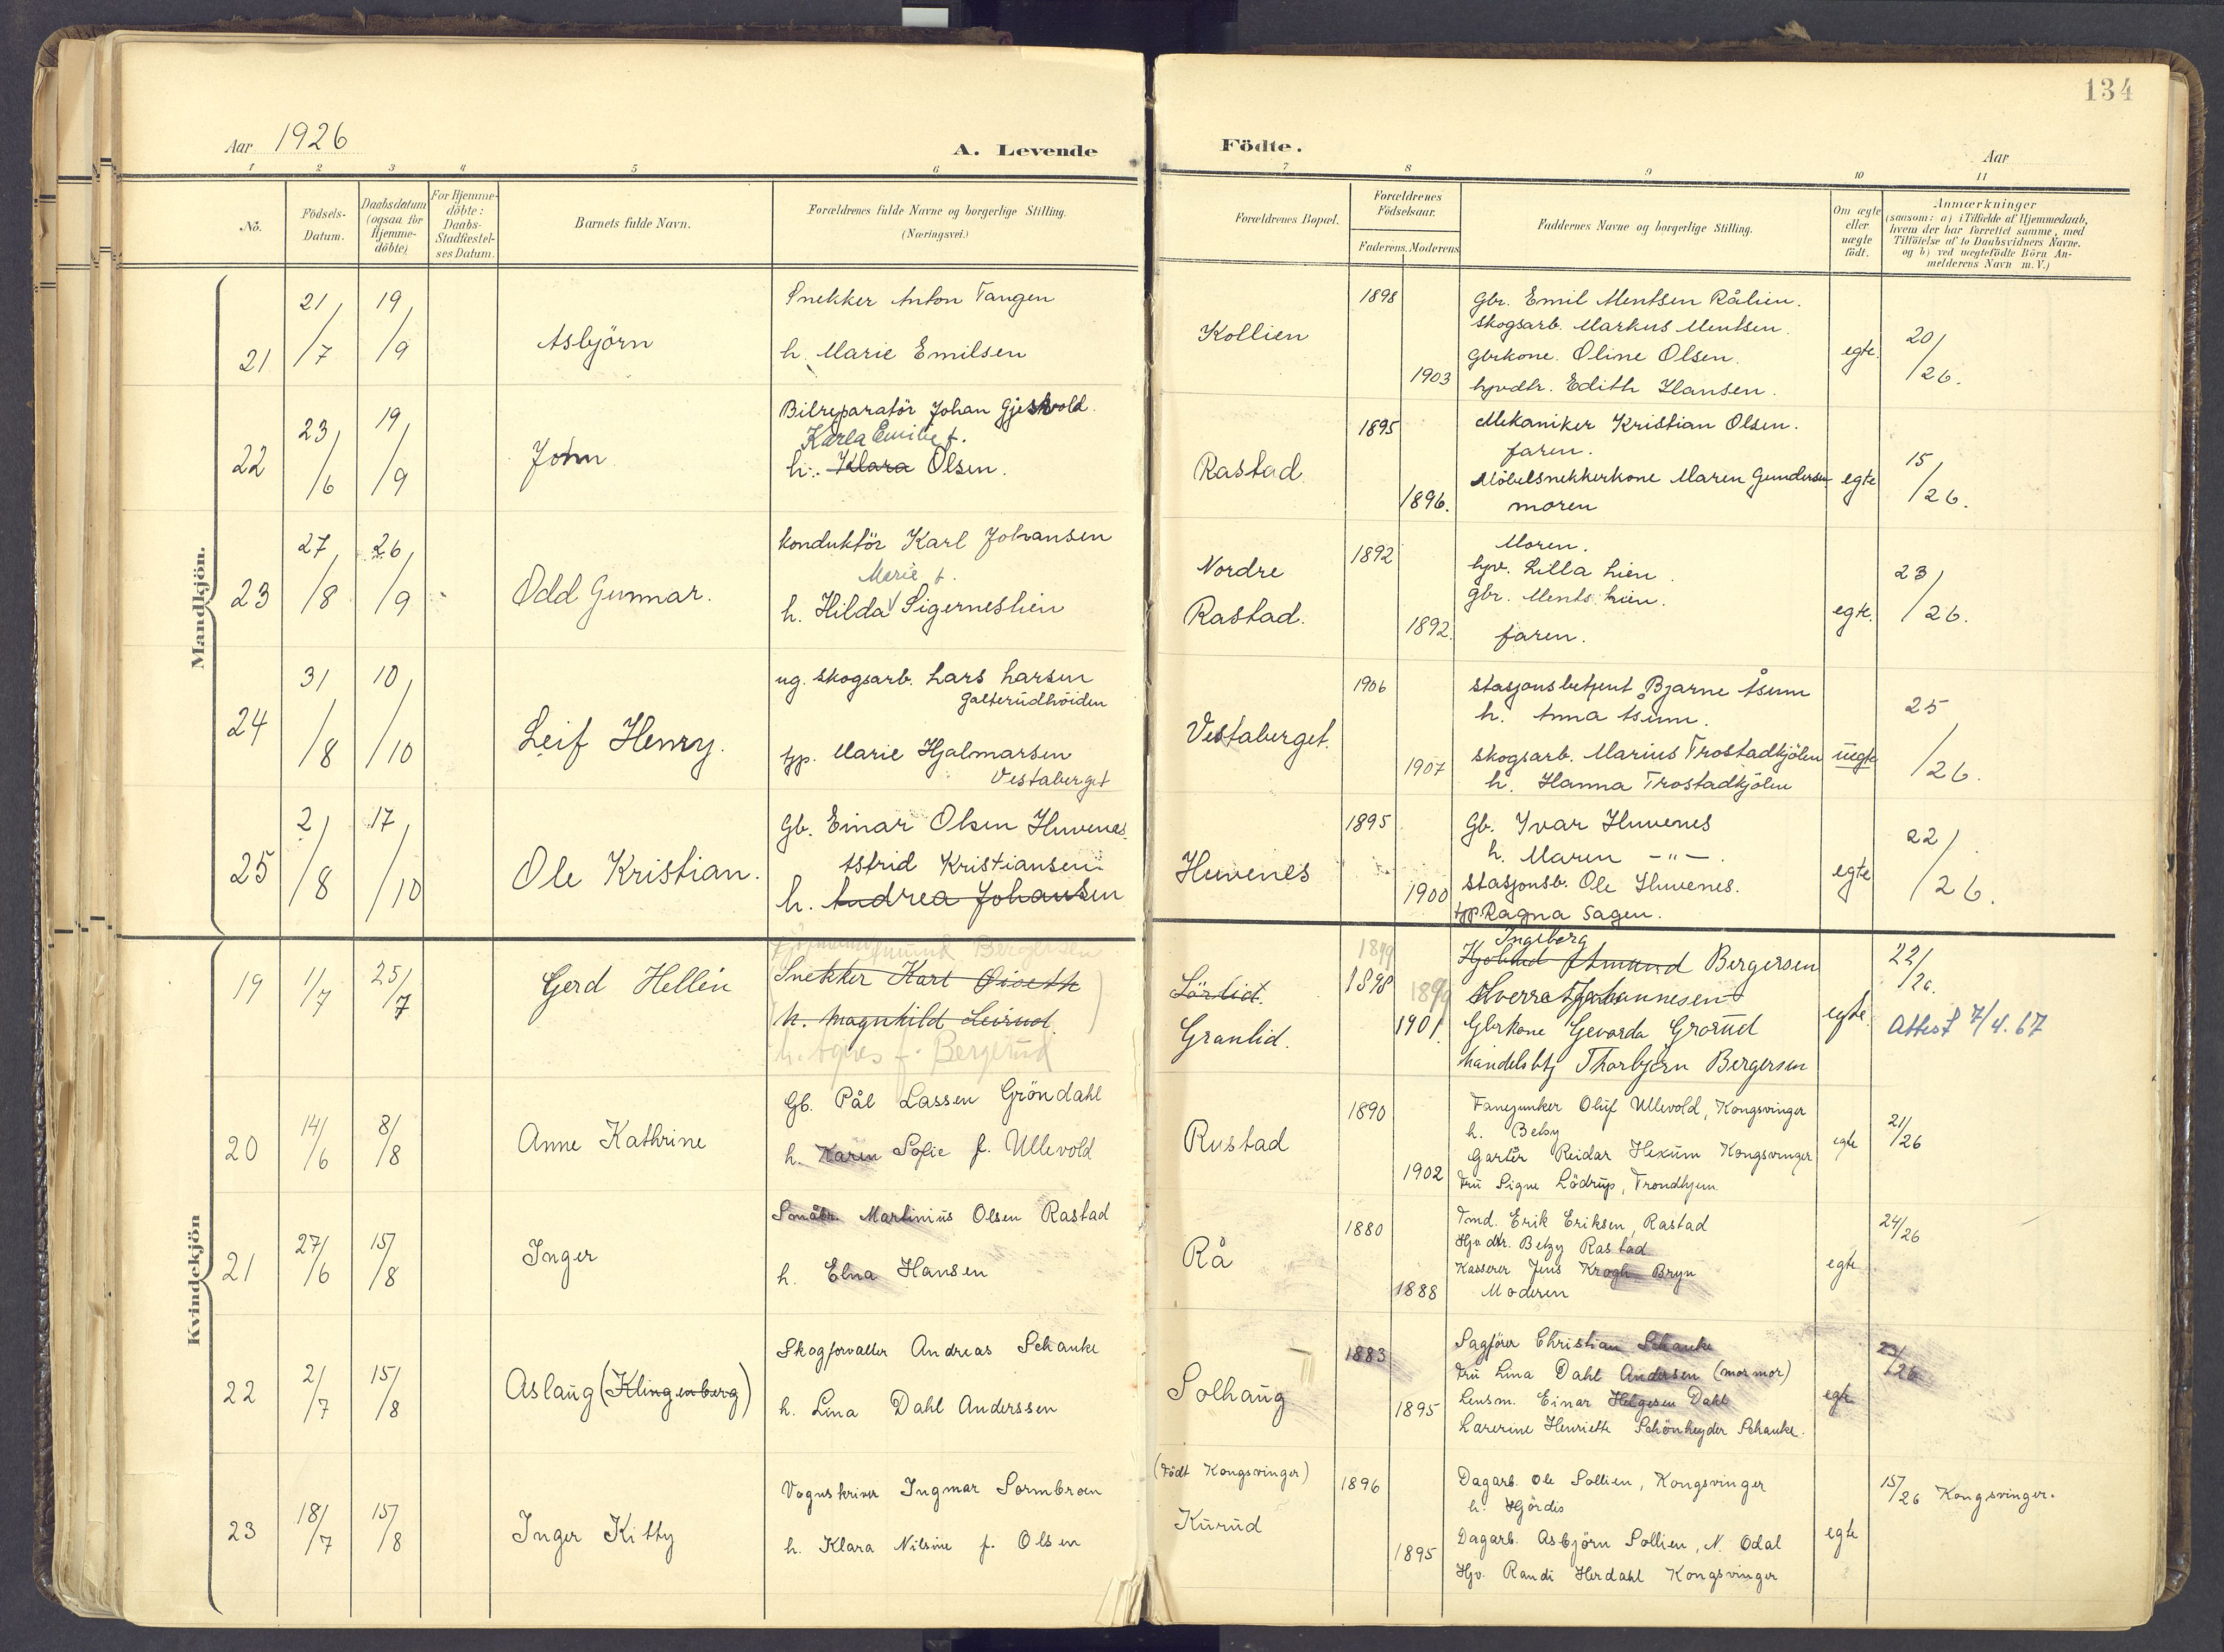 134
Aar 1926
A. Levende
Födte.
Aar
1 2 3 4 5 6
7 8 9 10 11
No.
Födsels-
Datum.
Daabsdatum
(ogsaa for
Hjemme-
döbte)
For Hjemme-
döbte:
Daabs-
Stadfæstel-
ses Datum.
Barnets fulde Navn.
Forældrenes fulde Navne og borgerlige Stilling.
(Næringsvei.)
Forældrenes Bopæl.
Forældrenes
Födselsaar.
Faderens. Moderens
Faddernes Navne og borgerlige Stilling.
Om ægte
eller
uægte
födt.
Anmærkninger
(saasom: a) i Tilfælde af Hjemmedaab,
hvem der har forrettet samme, med
Tilföielse af to Daabsvidners Navne.
og b) ved uægtefödte Börn An-
melderens Navn m. V.)
Mandkjön.
21
21/7
19/9
Asbjörn
Snekker Anton Tangen
h. Marie Emilsen
Kollien
1898
1903
Gbr. Emil Mentsen Rålien.
Skogsarb. Markus Mentsen.
Gbrkone. Oline Olsen.
hpvdtr. Edith Hansen.
egte.
20/26.
22
23/6
19/9
John
Bilreparatör Johan Gjeskvold.
Karla Emilie f.
h. Klara Olsen.
Rastad
1895
1896.
Mekaniker Kristian Olsen.
faren.
Möbelsnekkerkone Maren Gundersen
moren
egte
15/26.
23
27/8
26/9
Odd Gunnar.
konduktör Karl Johansen
Marie f.
h. Hilda Sigerneslien
Nordre
Rastad.
1892
1892.
Moren.
hpv. Lilla Lien.
gbr. Ments Lien.
faren.
egte.
23/26.
24
31/8
10/10
Leif Henry.
ug. skogsarb. Lars Larsen
Galterudhöiden
tjp. Marie Hjalmarsen
Vestaberget
Vestaberget.
1906
1907
Stasjonsbetjent Bjarne Åsum
h. Anna Åsum.
Skogsarb. Marius Trostadkjölen
h. Hanna Trostadkjölen
uegte
25/26.
25
2/8
17/10
Ole Kristian.
Gb. Einar Olsen Huvenes
Astrid Kristiansen
h. Andrea Johansen
Huvenes
1895
1900
Gb. Ivar Huvenes
h. Maren -"-.
Stasjonsb. Ole Huvenes.
tjp. Ragna Sagen.
egte
22/26.
Kvindekjön
19
1/7
25/7
Gerd Hellin
Amund Bergersen
Snekker Karl Oiseth
h. Magnhild Leirud.
h. Agnes f. Bergerud
Lörlid.
Granlid.
1899
1898
1899
1901.
Ingeberg
Amund Bergersen
Sverre Johannesen
Gbrkone Gevorda Grorud
Handelsbtj Thorbjörn Bergersen
egte.
22/26.
Attest 7/4.67
20
14/6
8/8
Anne Kathrine
Gb. Pål Lassen Gröndahl
h. Karen Sofie f. Ullevold
Rustad
1890
1902
Fanejunker Oluf Ullevold, Kongsvinger
h. Betsy
Gartör Reidar Hexum Kongsvinger
Fru Signe Lödrup, Trondhjem
egte
21/26
21
27/6
15/8
Inger
Småbr. Martinius Olsen Rastad
h. Elna Hansen
Rå
1880
1888
Tmd. Erik Eriksen, Rastad
Hjv dtr. Betzy Rastad
Kasserer Jens Krogh Bryn
Moderen
egte
24/26
22
2/7
15/8
Aslaug (Klingenberg)
Skogforvalter Andreas Schanke
h. Lina Dahl Anderssen
Solhaug
1883
1895
Sagförer Christian Schanke
Fru Lina Dahl Andersen (mormor)
Lensm. Einar Helgesen Dahl
Lærerine Henriette Schönheyder Schanke.
egte
23/26
23
18/7
15/8
Inger Kitty
Vognskriver Ingmar Sormbroen
h. Klara Nilsine f. Olsen
(Födt Kongsvinger)
Kurud
1896
1895
Dagarb. Ole Sollien, Kongsvinger
h. Hjördis
Dagarb. Asbjörn Sollien, N. Odal
Hjv. Randi Herdahl Kongsvinger
egte
15/26 Kongsvinger.